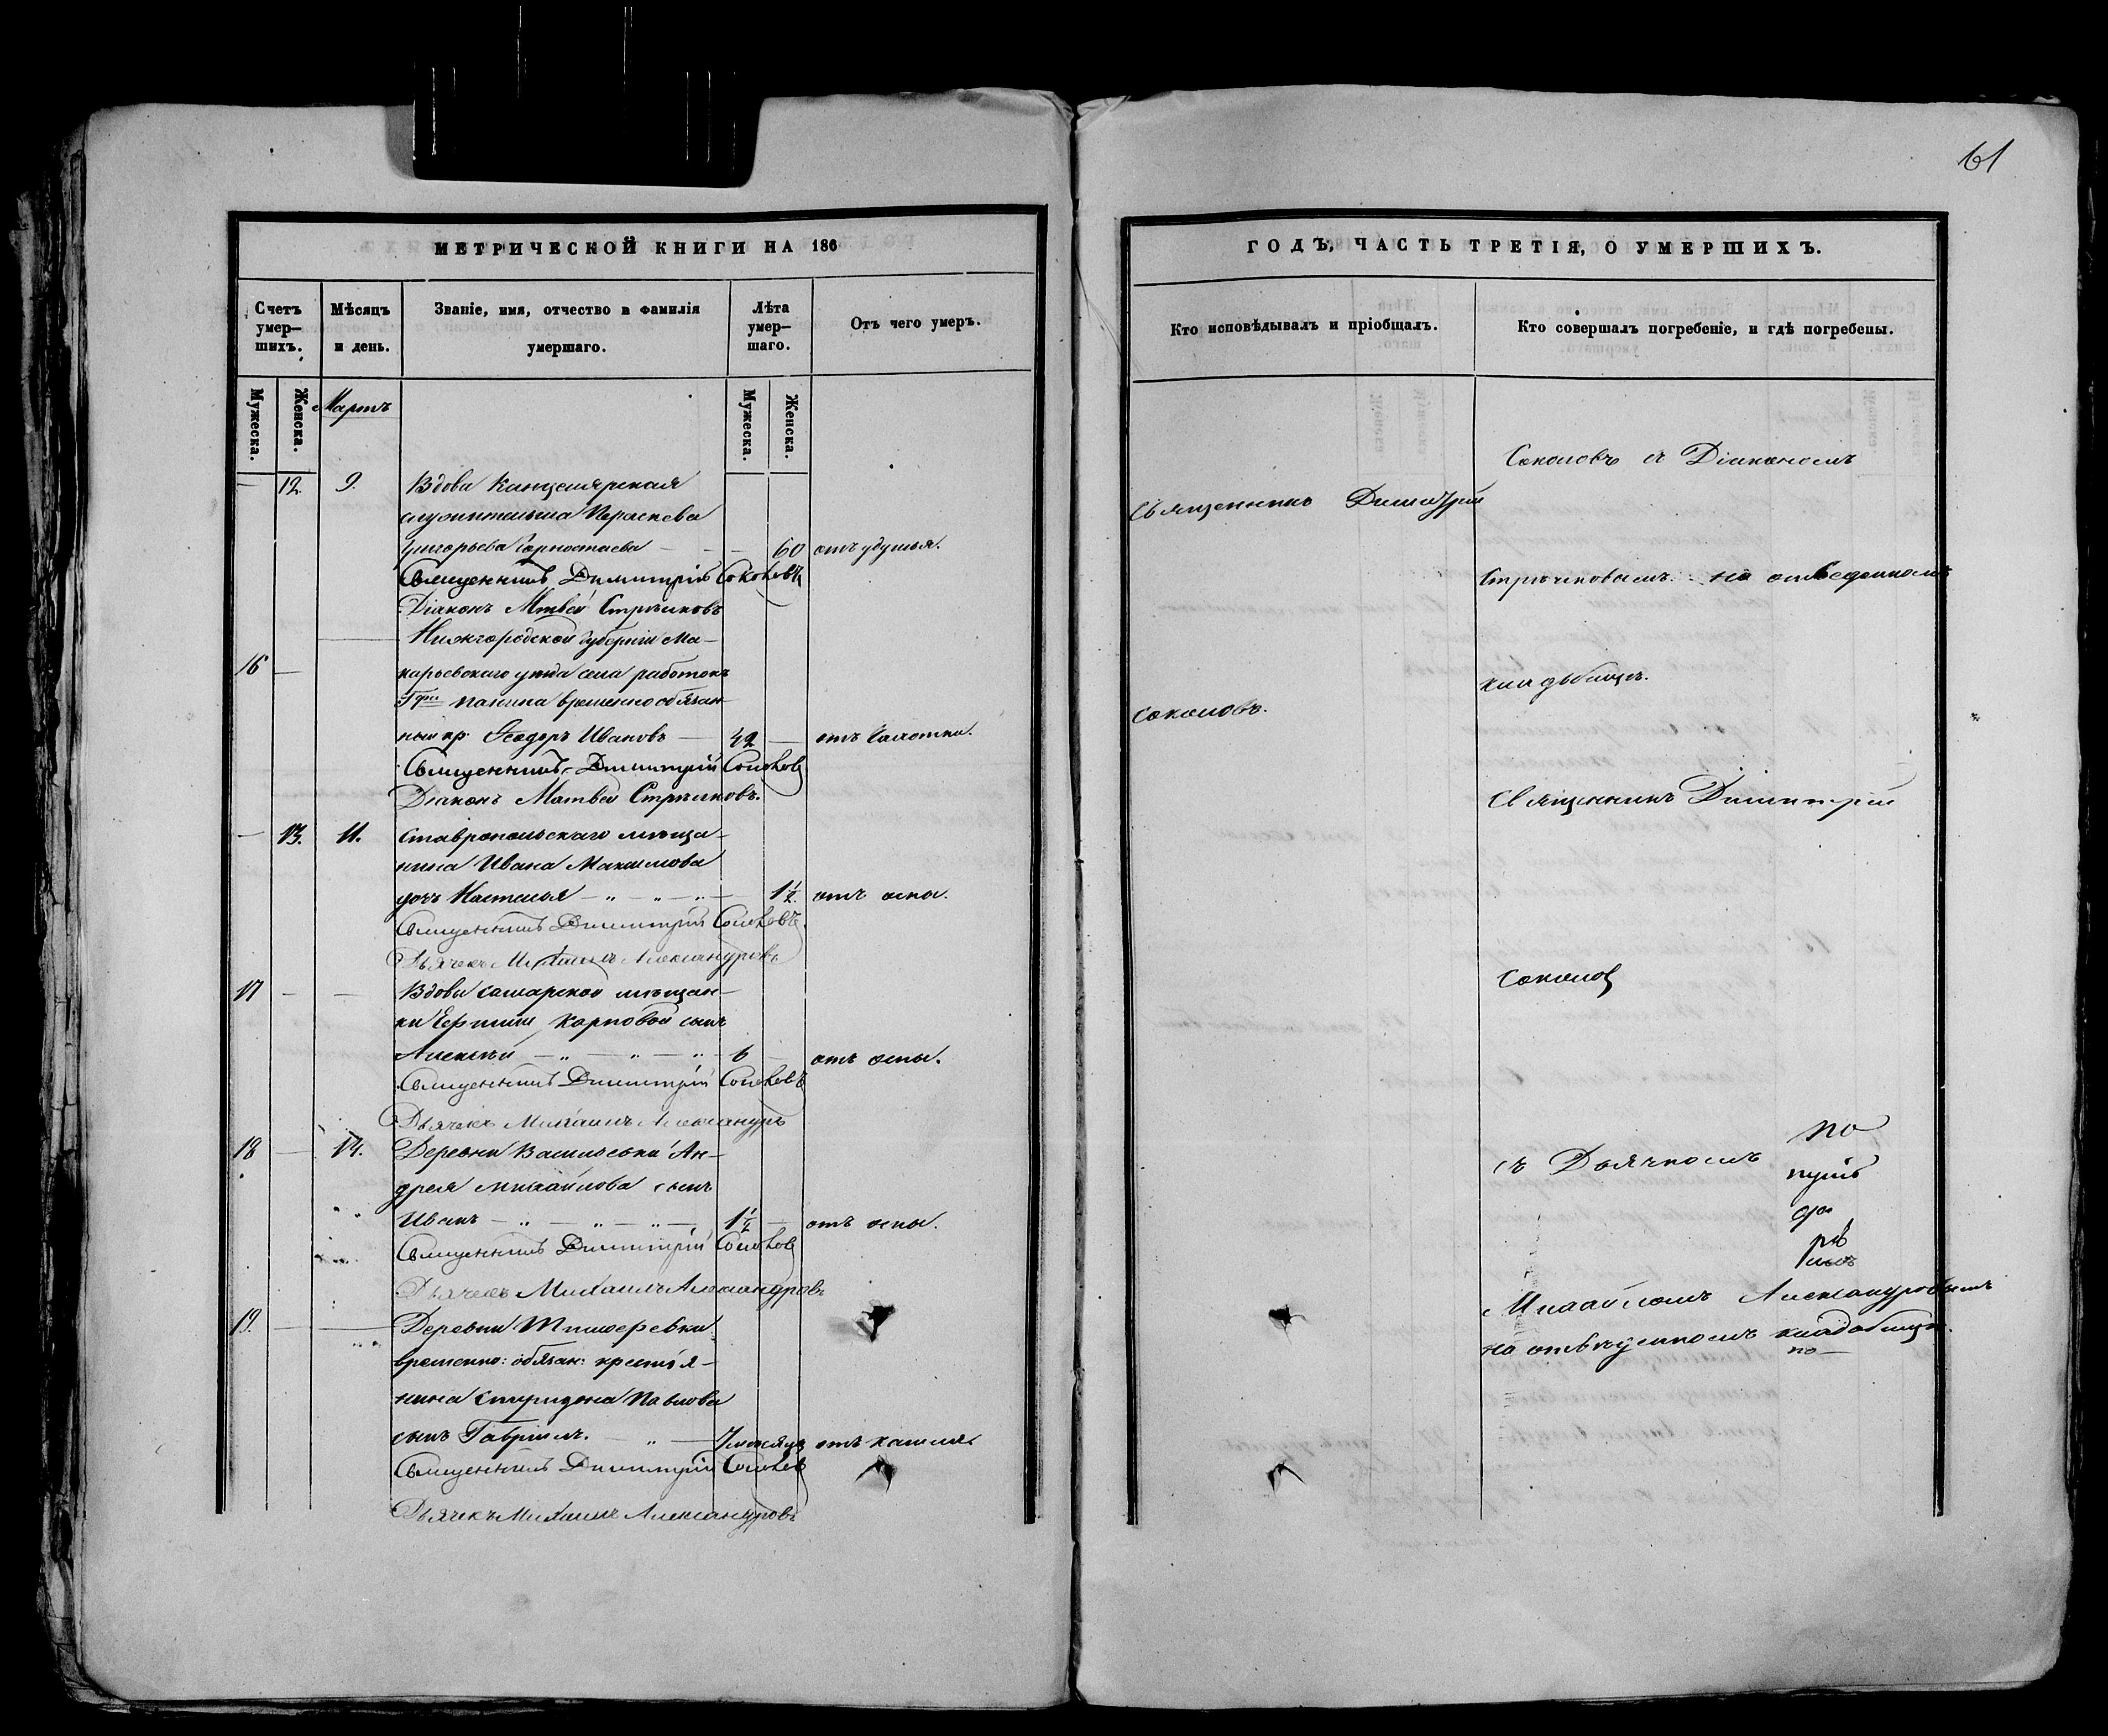 61
МЕТРИЧЕСКОЙ КНИГИ НА 186
Счетъ умер–шихъ.
Мѣсяцъ и день.
Званіе, имя, отчество и фамилія умершаго.
Лѣта умер–шаго.
Отъ чего умеръ.
Мужеска.
Женска.
Мартъ
Мужеска.
Женска.
12. 9. Вдова Канцелярская
служительша Параскева
Григорьева Горностаева — 60 отъ удушья.
Священникъ Димитрій Соколовъ
Діаконъ Матвей Стрѣлковъ
Нижегородской Губерніи Ма–
16 — карьевскаго уѣзда села работокъ
Панина временно обязан–
ный кр. Ѳеодоръ Ивановъ — 42 — отъ чахотки.
Священникъ Димитрій Соколовъ
Діаконъ Матвей Стрѣлковъ.
— 13. 11. Ставропольскаго мѣща–
нина Ивана Максимова
дочь Настасья — 1½. отъ оспы.
Священникъ Димитрій Соколовъ
Дьячекъ Михаилъ Александровъ
17 — — Вдовы самарской мѣщан–
ки Карповой сынъ
Алексѣй — 6 — отъ оспы.
Священникъ Димитрій Соколовъ
Дьячекъ Михаилъ Александръ
18 — 14. Деревни Васильевки Ан–
дрея Михайлова сынъ
Иванъ — 1½ — отъ оспы.
Священникъ Димитрій Соколовъ
Дьячекъ Михаилъ Александровъ
19. — — Деревни
временно: обязан: крестья–
нина Спиридона Павлова
сынъ Гавріилъ. — 7 месяцъ отъ кашля.
Священникъ Димитрій Соколовъ
Дьячекъ Михаилъ Александровъ
ГОДЪ, ЧАСТЬ ТРЕТІЯ, О УМЕРШИХЪ.
Кто исповѣдывалъ и пріобщалъ.
Кто совершалъ погребеніе, и гдѣ погребены.
Священникъ Димитрій
Соколовъ.
Соколовъ съ Діакономъ
Стрѣлковымъ на отведенномъ
кладбищѣ.
Священникъ Димитрій
Соколовъ
съ Дьячкомъ
по
Михайломъ Александровымъ
на кладбищѣ.
по